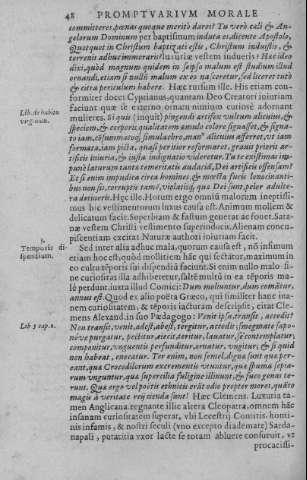 48 PROMPTVARIVM MORALE
committeres, pœnas quæque meritò dares? Tu verò cœli & An-
gelorum Dominum per baptismum induta es, dicente Apostolo,
Quotquot in Christum baptizati estis, Christum induistis, &
terrenis adiuc immerari vestem indueris? Hæc ideo
dixi, quòd magnum quidem in seipso malum est studium illud
ornandi, etiam si nullũ malum ex eo nasceretur, sed liceret tutò
& citra periculum habere. Hæc rursum ille. His etiam con-
formiter docet Cyprianus, quantam Deo Creatori iniuriam
faciunt quæ se externo ornatu nimium cutinē adornant
Lib. de habitu
virginum.
mulieres. Si quis (inquit) pingendi artifex vultum alicuius, &
speciem, & corporis qualitatem æmulo colore signasset, & signa-
to iam, consummatoq; simulachro, manũ alius inferret, vt iam
formata, iam picta, quasi peritior reformaret, grauis prioris ar-
tificis iniuria, & iusta indignatio videretur. Tu te existimas im-
punè laturam tantæ temeritatis audaciã, Dei artificis offensam?
Et si enim impudica circa homines, & incesta fucis lenocinanti-
bus non sis, corruptis tamē, violatisq; quæ Dei sunt, peior adulte-
ra detineris. Hęc ille. Horum ergo omniū malorum ineptissi-
mus hic vestimentorum luxus causa est. Animum mollem &
delicatum facit. Superbiam & fastum generat ac fouet. Sata-
næ vestem Christi vestimento superinducit. Alienam concu-
piscentiam excitat Naturæ authori iniuriam facit.
5.
Temporis di-
spendium.
Sed inter alia adhuc mala, quorum causa est, nō infimum
etiam hoc est, quòd mollitiem hāc qui sectātur, maximum in
eo cultu tēporis sui dispendiũ faciunt. Si enim nullo malo si-
ne curiositas illa adhiberetur, saltē multũ in ea tēporis ma-
lè perdunt, iuxta illud Comici: Dum moliuntur, dum comūtur,
annus est. Quod ex alio poēta Græco, qui similiter hanc ina-
nem curiositatem, & tēporis iacturam describit, citat Cle-
mens Alexand. in suo Pædagogo: Venit ipsa, transit, accedit
Lib 3 cap. 2.
Non transit, venit, adest, abest, tergitur, accedit, smegmate sapo-
néve purgatur, pectitur, eiecit, teritur, lauatur, se contemplatur;
componitur, vnguentis perfunditur, ornatur, vngitur, & si quid
non habent, enecatur. Ter enim, non semel, digna sunt quæ per-
eant, quæ Crocodilorum excrementis vnuntur, quæ spuma sepia-
rum vnguntur, quæ supercilia fuligine illinunt, & fuco genas te-
runt. Quæ ergo vel poētis ethnicis erāt odio propter mores, quāto
magis à veritate reijciendæ sunt? Hæc Clemens. Luxuria ta-
men Anglicana, regnante illic altera Cleopatra, omnem hāc
insanam curiositatem superat, vbi Lecestrij Comitis, homi-
nis infamis, & nostri seculi (vno excepto diademate) Sarda-
napali, putatitia vxor laste se totam abluere consueuit, vt
procacissi-